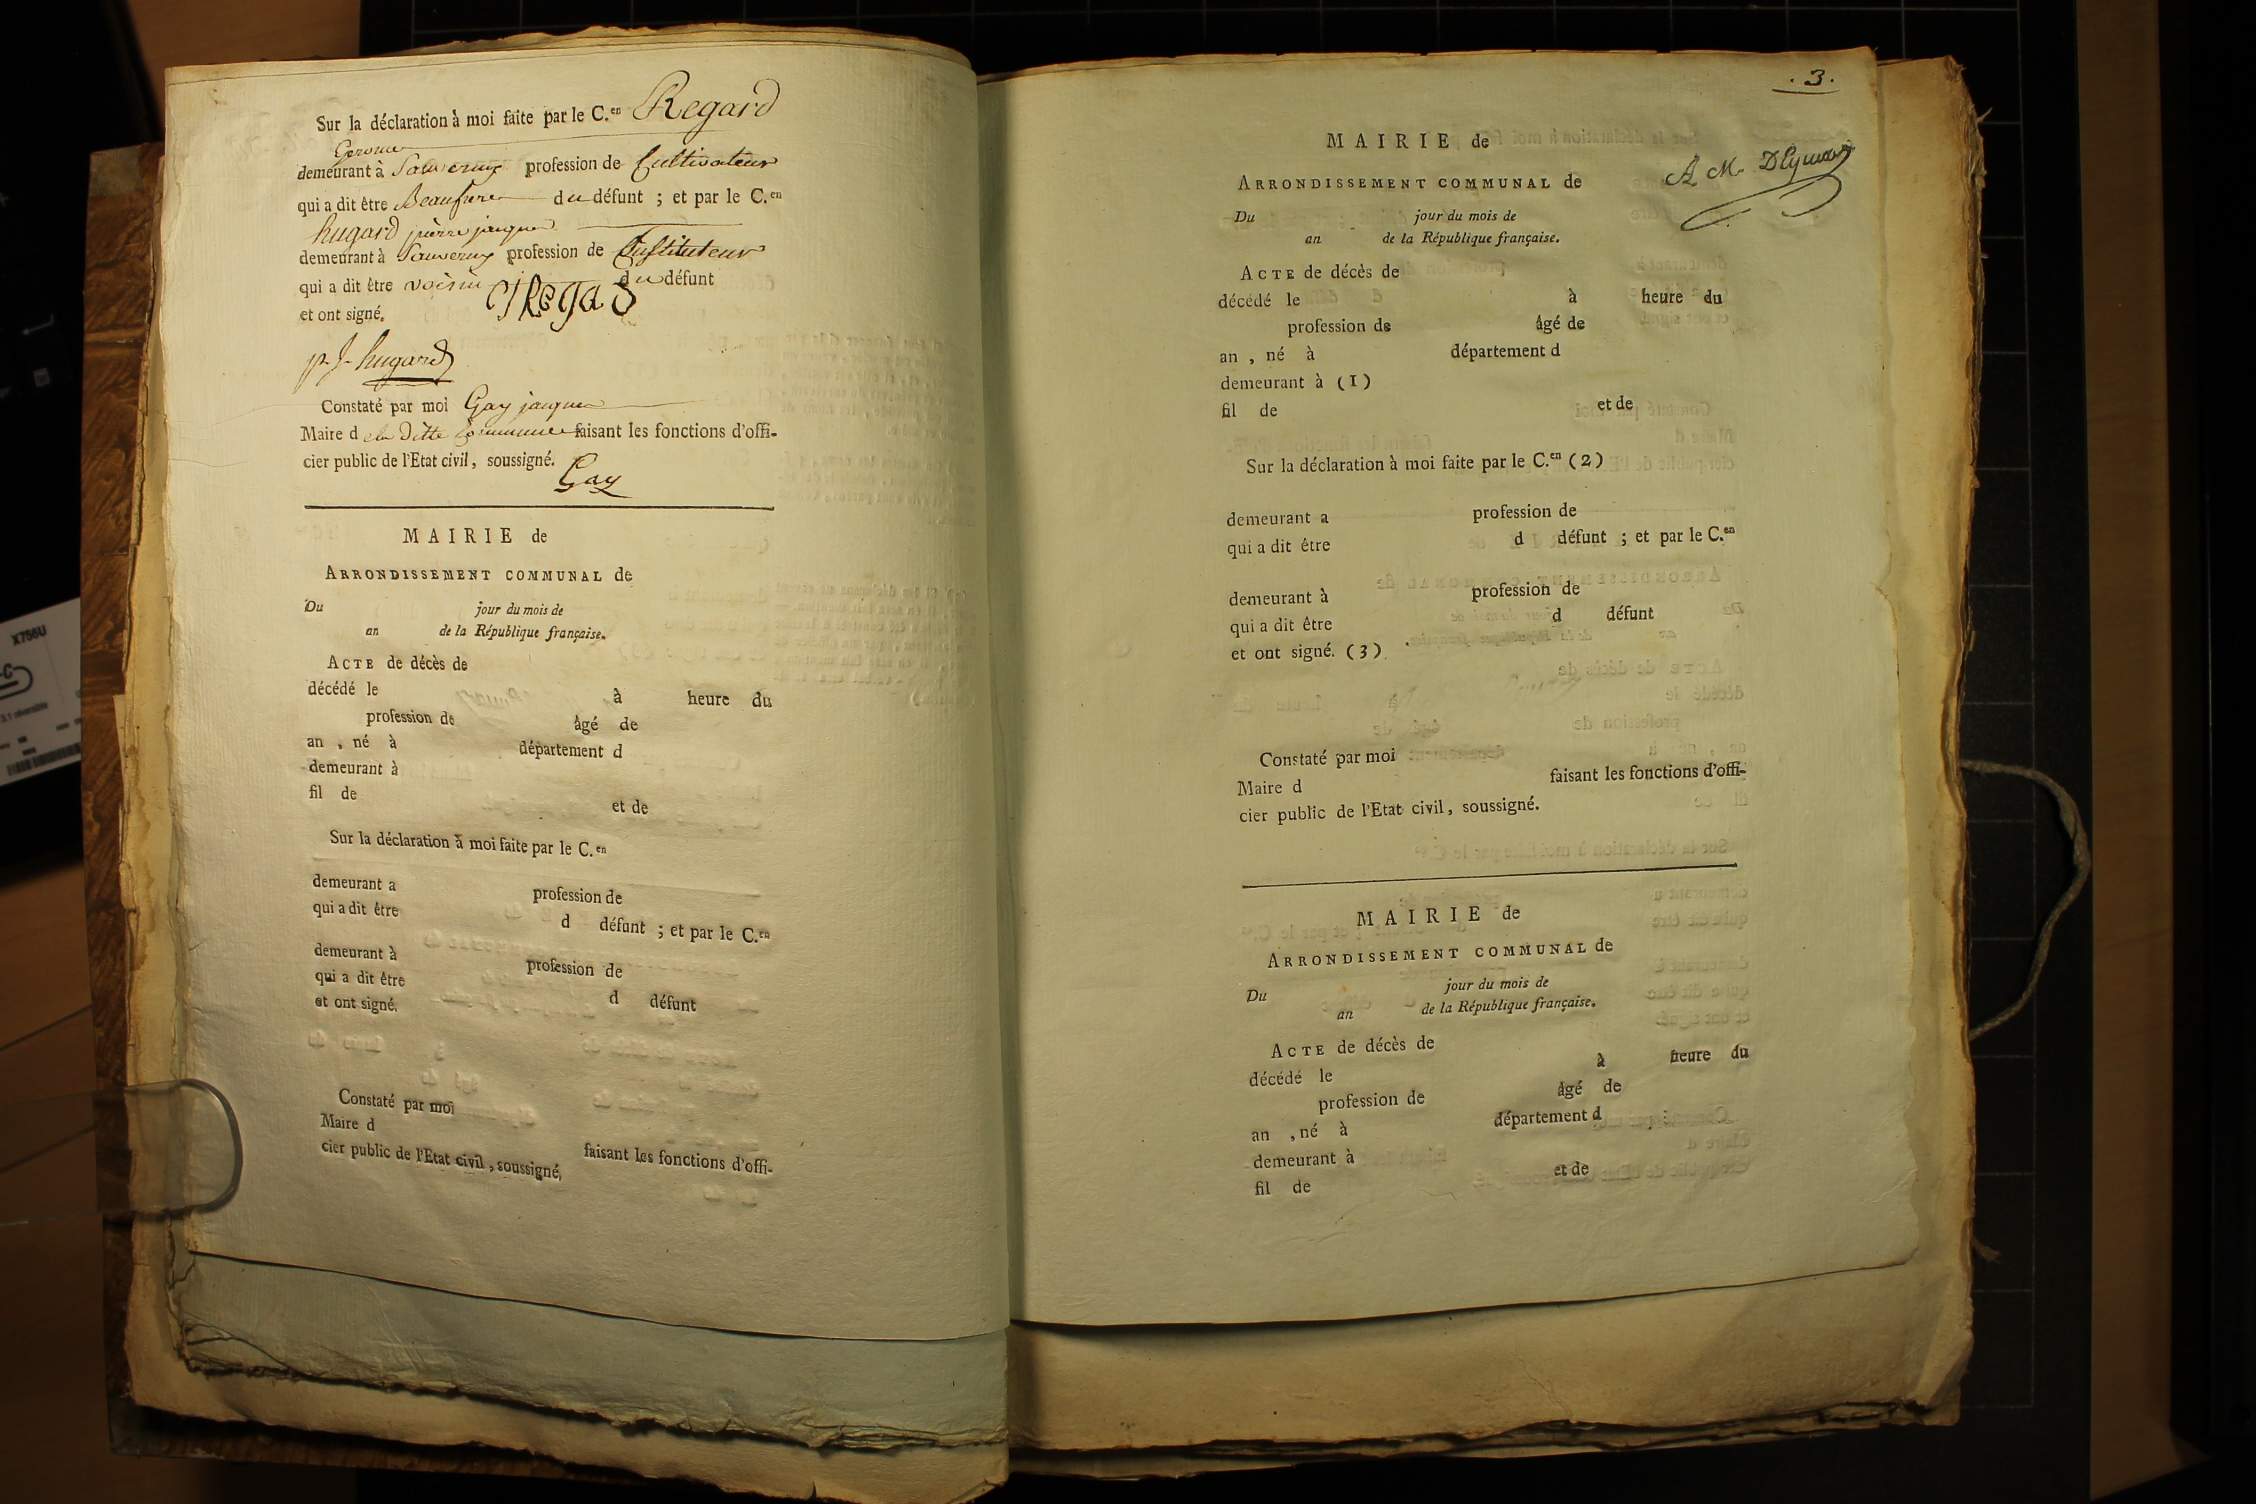 Sur la déclaration à moi faite par le C.en Regard
Gerome
demeurant à Sauverny profession de Cultivateur
qui a dit être Beaufrere du défunt ; et par le C.en
hugard pierre jacques
demeurant à Sauverny profession de Instituteur
qui a dit être voisin du défunt
et ont signé.
p. J. hugard
Constaté par moi Gay jacques
Maire de la ditte Commune faisant les fonctions d'offi-
cier public de l'Etat civil, soussigné.
Gay
MAIRIE de
ARRONDISSEMENT COMMUNAL de
Du jour du mois de
an de la République française.
ACTE de décès de
décédé le à heure du
profession de âgé de
an , né à département d
demeurant à
fil de et de
Sur la déclaration à moi faite par le C.en
demeurant a profession de
qui a dit être d défunt ; et par le C.en
demeurant à profession de
qui a dit être d défunt
et ont signé.
Constaté par moi
Maire d faisant les fonctions d'offi-
cier public de l'Etat civil, soussigné,
. 3 .
MAIRIE de
ARRONDISSEMENT COMMUNAL de
Du jour du mois de
an de la République française.
ACTE de décès de
décédé le à heure du
profession de âgé de
an , né à département d
demeurant à (1)
fil de et de
Sur la déclaration à moi faite par le C.en (2)
demeurant a profession de
qui a dit être d défunt ; et par le C.en
demeurant à profession de
qui a dit être d défunt
et ont signé. (3)
Constaté par moi
Maire d faisant les fonctions d'offi-
cier public de l'Etat civil, soussigné.
MAIRIE de
ARRONDISSEMENT COMMUNAL de
Du jour du mois de
an de la République française.
ACTE de décès de
décédé le à heure du
profession de âgé de
an , né à département d
demeurant à
fil de et de
X756U